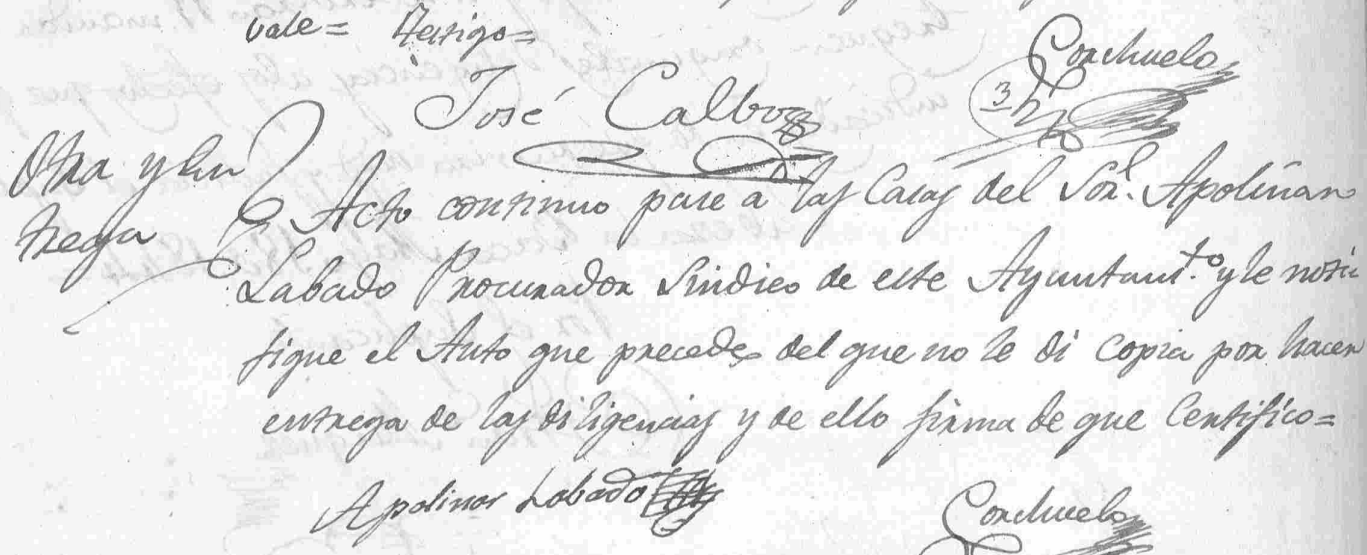 vale = Testigo =
Conchuelo
José Calbo
Otra y En
trega
Acto continuo pase a las Casas del Sor. Apolinar
Labado Procurador Sindico de este Ayuntamto. y le noti
fique el Auto que precede, del que no le di copia por hacer
entrega de las diligencias y de ello firma de que Certifico =
Apolinar Lobado
Conchuelo